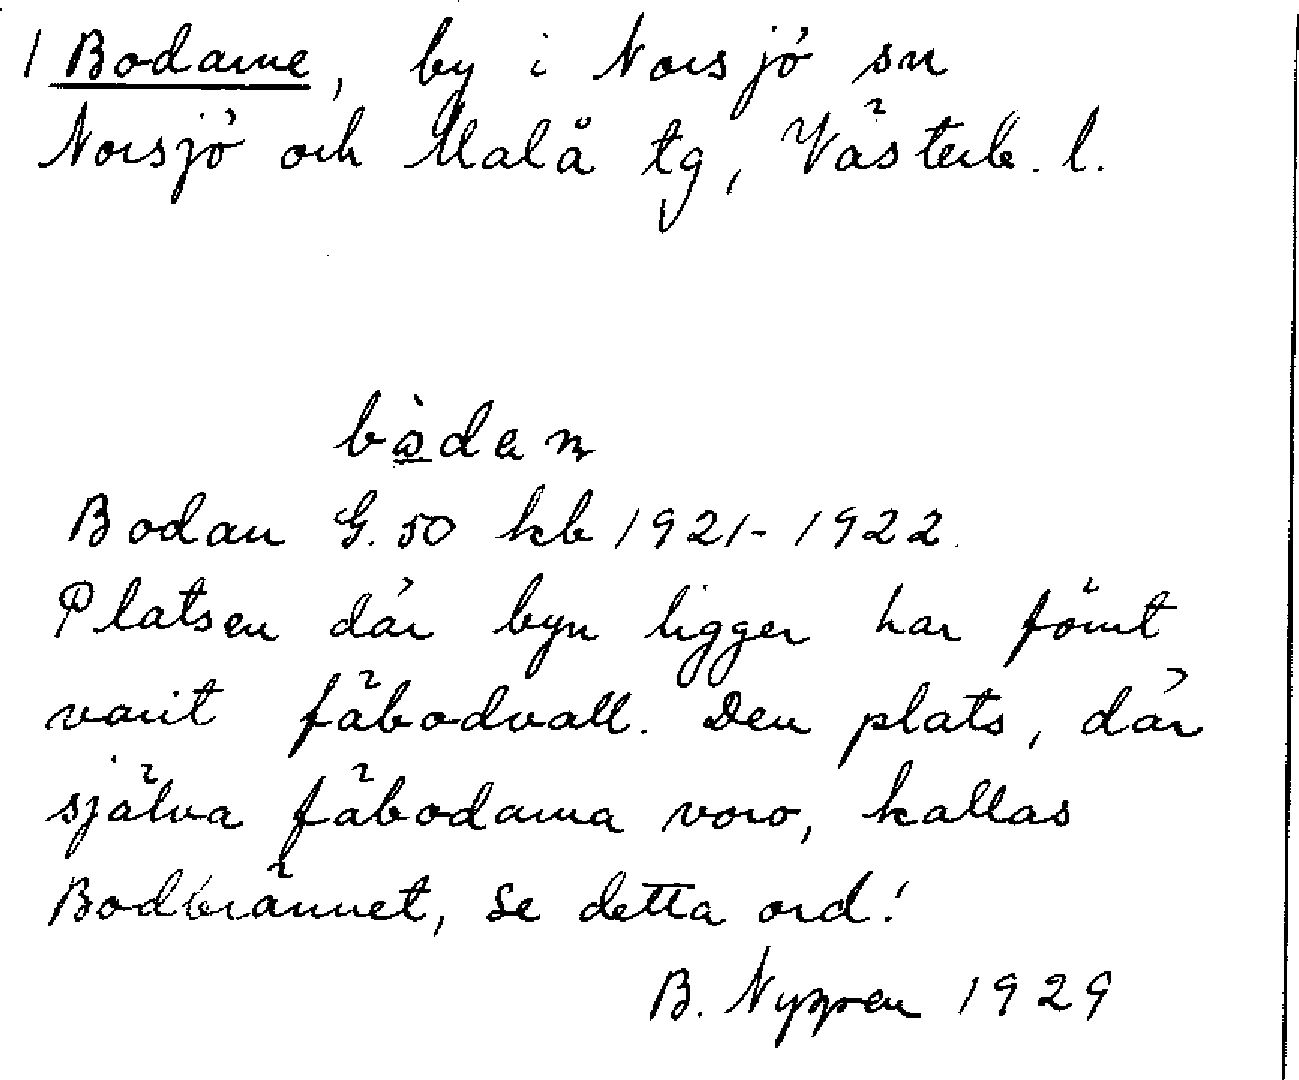 1 Bodarne, by i Norsjö sn
Norsjö och Malå tg, Västerb. l.
bòdan
Bodan G. 50 kb 1921-1922.
Platsen där byn ligger har förut
varit fäbodvall. Den plats, där
själva fäbodarna voro, kallas
Bodbrännet, se detta ord!
B. 1929